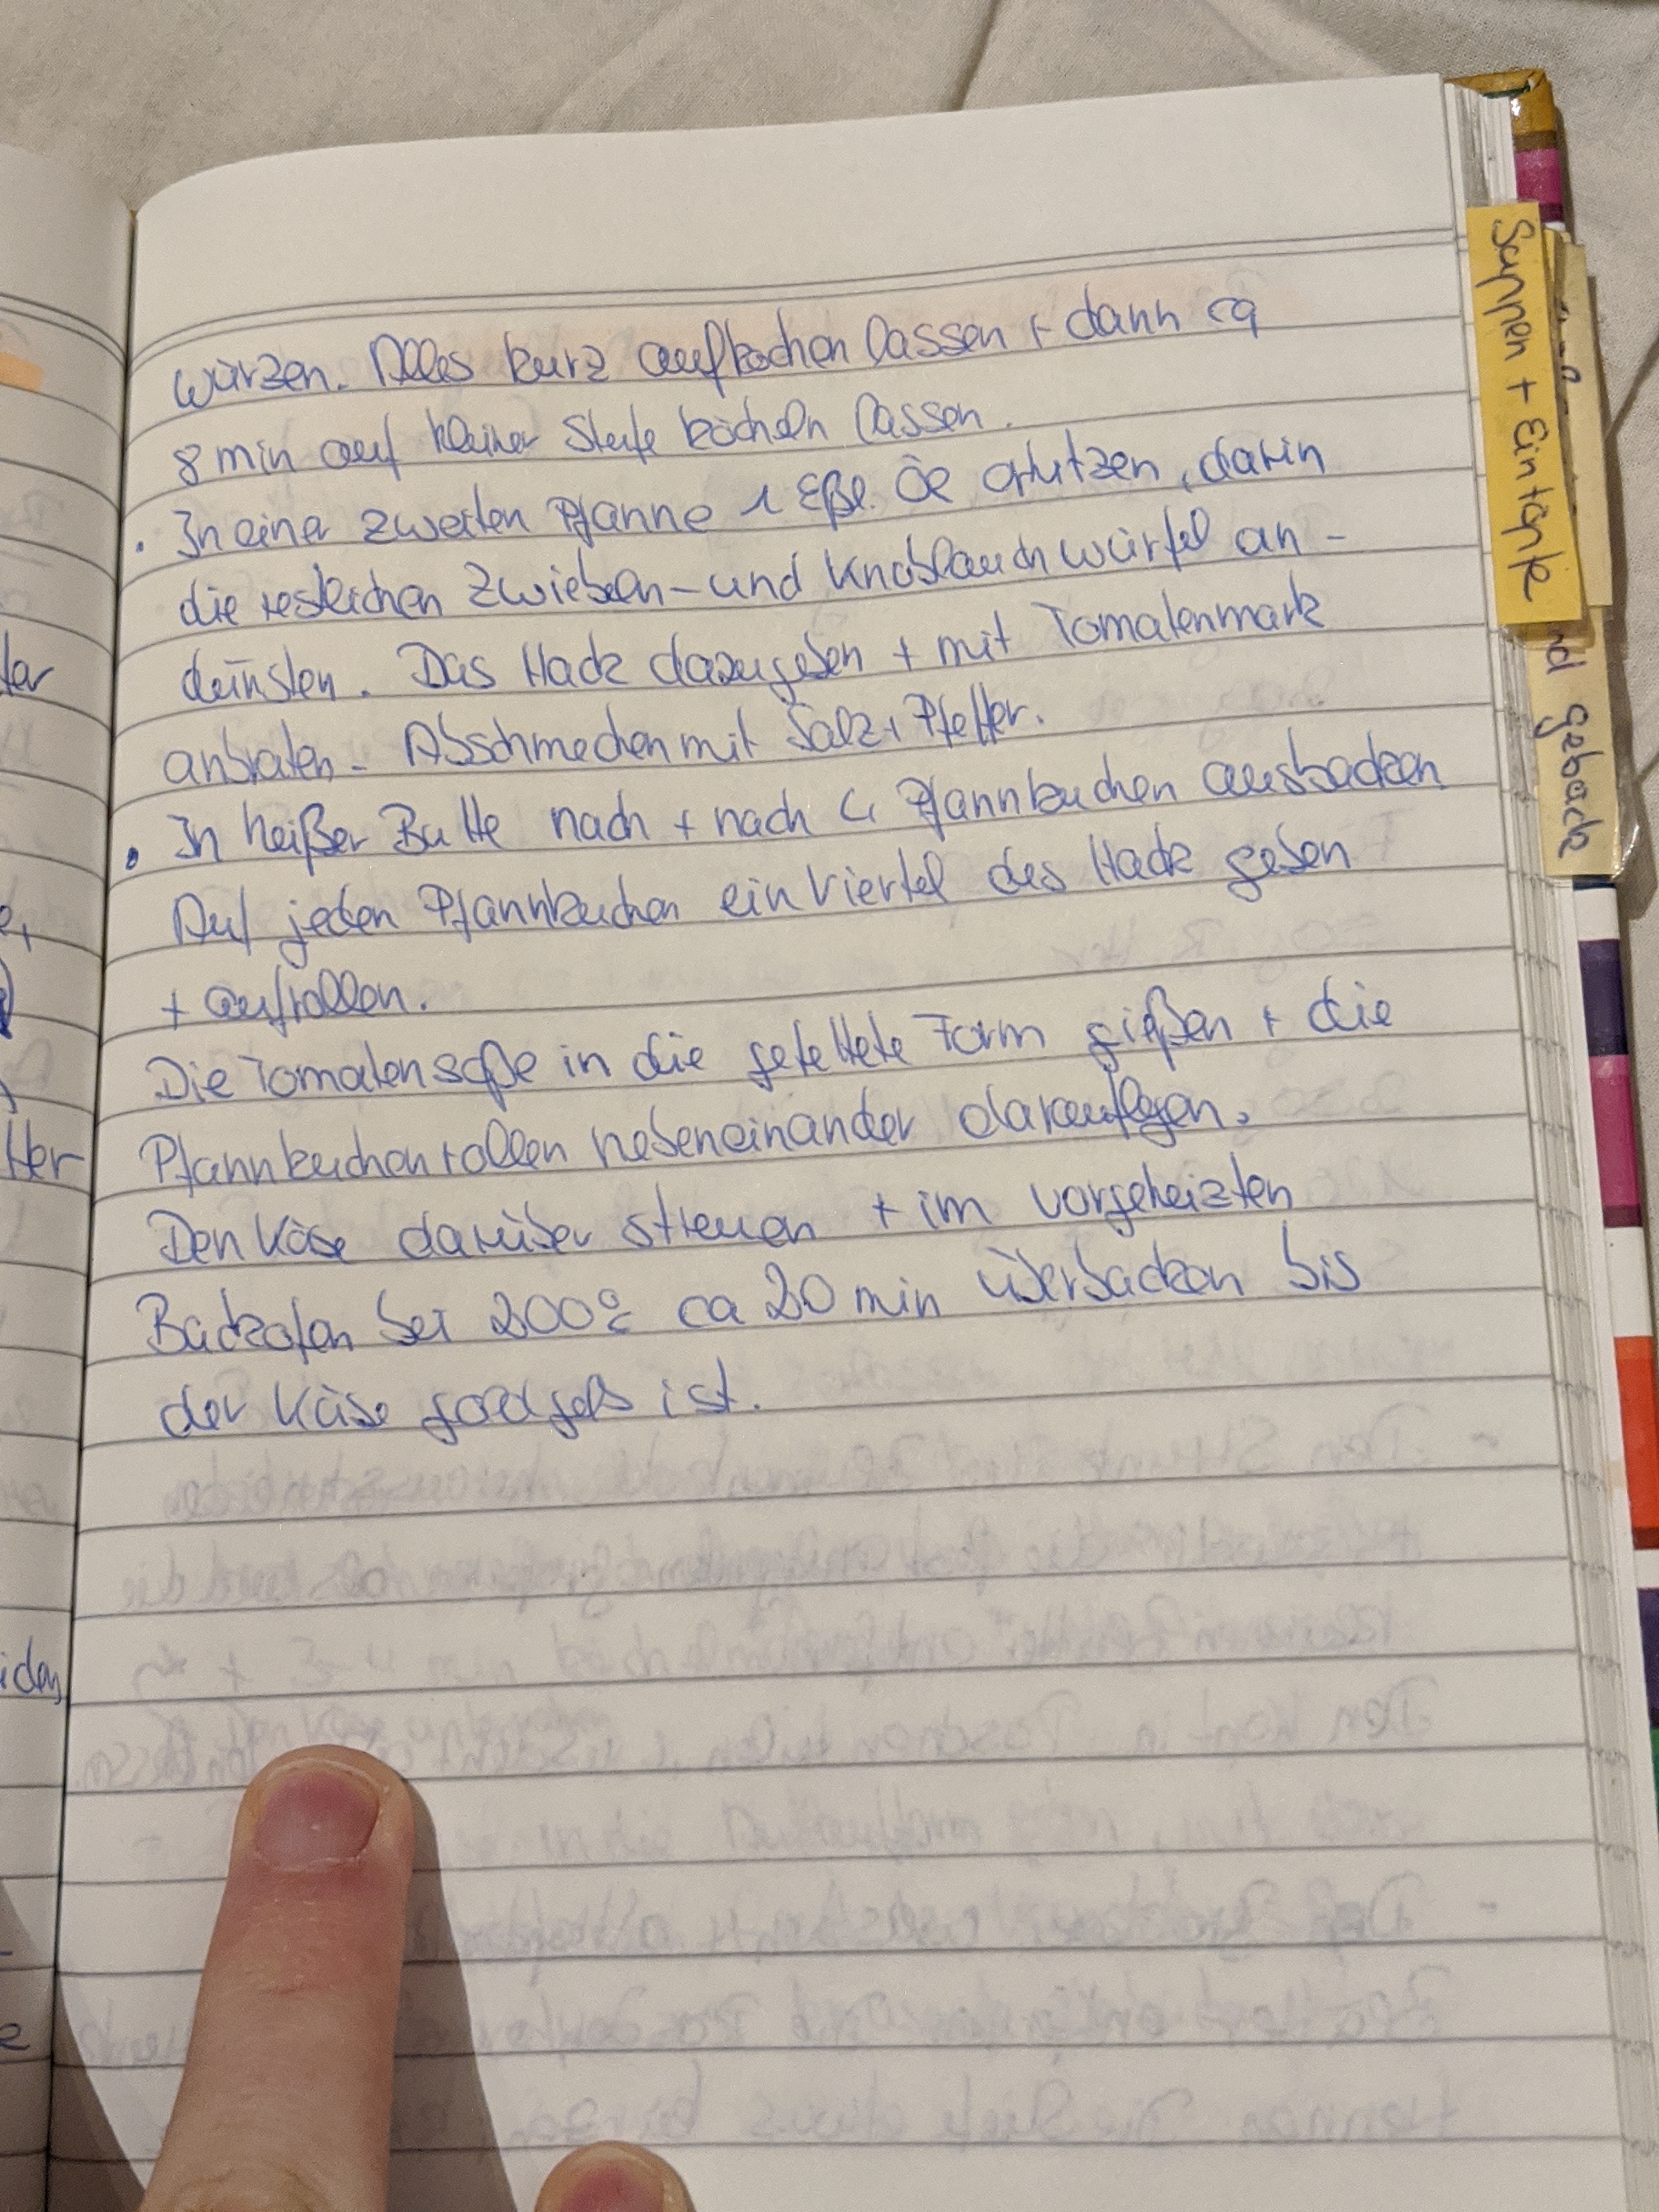 würzen. Alles kurz aufkochen lassen + dann ca
8 min auf kleiner Stufe köcheln lassen.
. In einer zweiten Pfanne 1 Eßl. Öl erhitzen, darin
die restlichen Zwiebeln- und Knoblauchwürfel an-
dünsten. Das Hack dazugeben + mit Tomatenmark
anbraten. Abschmecken mit Salz + Pfeffer.
. In heißer Butte nach + nach 4 Pfannkuchen ausbacken
Auf jeden Pfannkuchen ein Viertel des Hack geben
+ aufrollen.
Die Tomatensoße in die gefettete Form gießen + die
Pfannkuchenrollen nebeneinander darauflegen.
Den Käse darüber streuen + im vorgeheizten
Backofen bei 200°C ca 20 min überbacken bis
der Käse goldgelb ist.
Suppen + Eintöpfe
nd gebäck